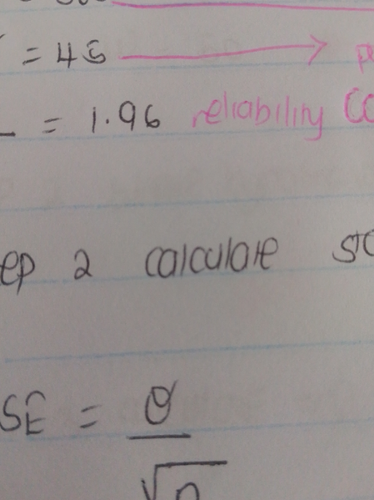 = 45
= 1.96 reliability
ep 2 calculate
SE = σ
√n